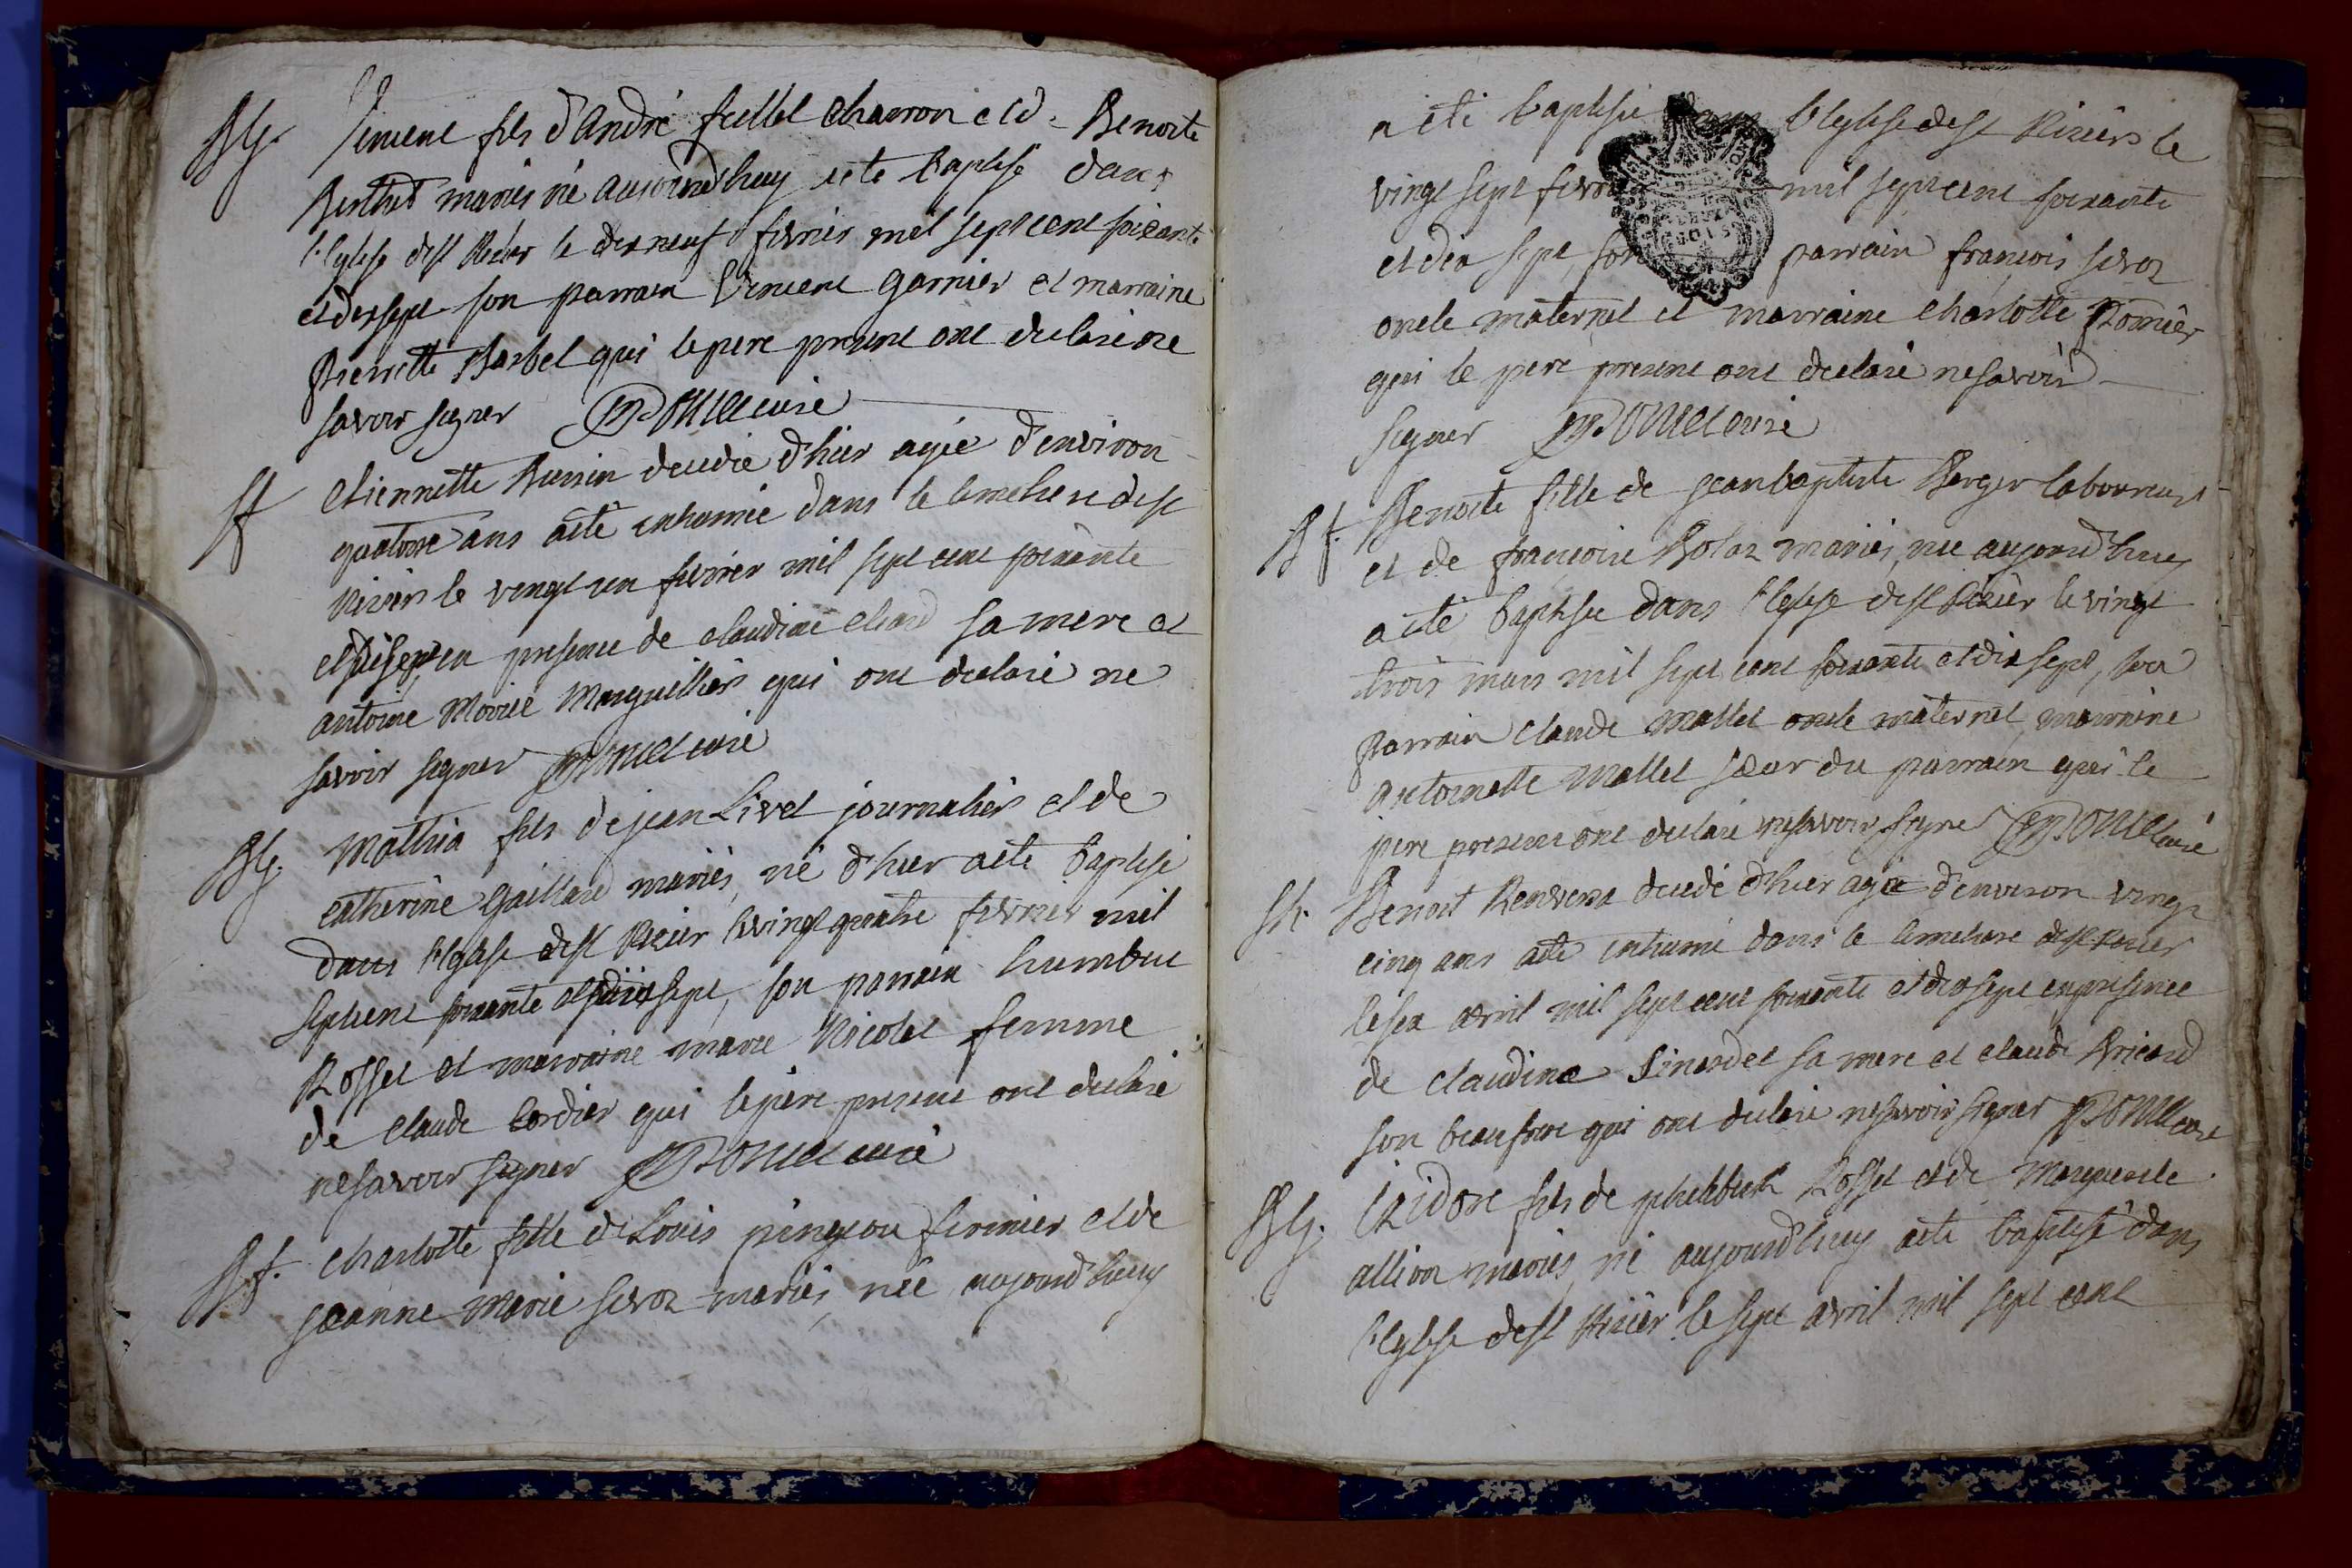 Bg. Vincent fils d'andré feuillet charron et d- Benoite
Berthet mariés né aujourd'huy a eté baptisé dans
l'eglise de st Rizier le dix neuf fevrier mil sept cent soixante
et dix sept son parrain Vincent garnier et marraine
pierrette Barbet qui le pere present ont declaré ne
savoir signer curé
Sf etiennette decedée d'hier agée d'environ
quatorze ans a eté inhumée dans le cimetiere de st
Rizier le vingt un fevrier mil sept cent soixante
et dix sept en presence de claudine sa mere et
antoine Marguillier qui ont declaré ne
savoir signer curé
Bg. Mathia fils de jean Livet journalier et de
catherine gaillard mariés, né d'hier a eté baptisé
dans l'eglise de st Rizier le vingt quatre fevrier mil
sept cent soixante et dix sept, son parrain humbert
Rosset et marraine marie Nicolet femme
de claude Cordier qui le pere present ont declaré
ne savoir signer curé
Bf. charlotte fille de Louis pingeon fermier et de
jeanne Marie sevoz mariés, née aujourd'huy
a eté baptisée dans l'eglise de st Rizier le
vingt sept fevrier mil sept cent soixante
et dix sept, son parrain françois sevoz
oncle maternel et marraine charlotte Romier
qui le pere present ont declaré ne savoir
signer curé
Bf. Benoite fille de jean baptiste Berger laboureur
et de françoise mariés, née aujourd'huy
a eté baptisée dans l'eglise de st Rizier le vingt
trois mars mil sept cent soixante et dix sept, son
parrain claude Mallet oncle maternel, marraine
antoinette Mallet sœur du parrain qui le
pere present ont declaré ne savoir signer curé
Sg. Benoit decedé d'hier agé d'environ vingt
cinq ans a eté inhumé dans le cimetiere de st Rizier
le six avril mil sept cent soixante et dix sept en presence
de claudine sa mere et claude Bricard
son beau frere qui ont declaré ne savoir signer curé
Bg. Izidore fils de philibert Rosset et de Marguerite
allion mariés, né aujourd'huy a eté baptisé dans
l'eglise de st Rizier le sept avril mil sept cent